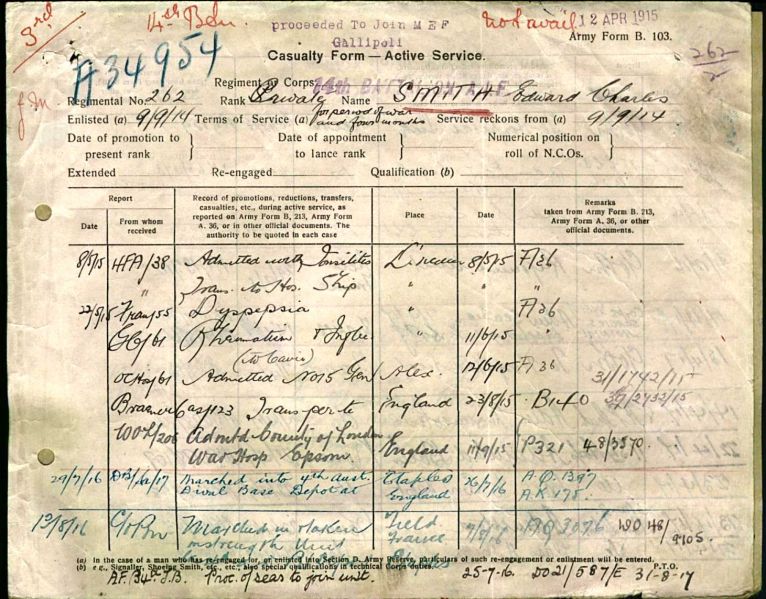 3rd
14th Bdn
proceeded To Join MEF
Gallipoli
Not avail
12 APR 1915
Army Form B. 103.
A34954
Casualty Form — Active Service.
262
2
Regiment or Corps 14th BATTALION A.I.F.
Regimental No. 262 Rank Private Name SMITH Edward Charles
Enlisted (a) 9/9/14 Terms of Service (a) for period of war and four months Service reckons from (a) 9/9/14
Date of promotion to present rank
Date of appointment to lance rank
Numerical position on roll of N.C.Os.
Extended Re-engaged Qualification (b)
Report
Date
From whom received
Record of promotions, reductions, transfers, casualties, etc., during active service, as reported on Army Form B, 213, Army Form A. 36, or in other official documents. The authority to be quoted in each case
Place
Date
Remarks
taken from Army Form B. 213, Army Form A. 36, or other official documents.
8/5/15 HFA/38 Admitted with Tonsilitis 8/5/15 F/26
" Trans. to Hos. Ship " "
22/5/15 Dyspepsia " A36
"
11/6/15 "
Admitted No 15 Gen Alex. 12/6/15 A36
31/1742/15
Trans per to England 23/8/15 B140
Admtd County of London War Hosp Epsom England 11/9/15 P321 48/3570
29/7/16 Marched into 4th Aust. Divnl Base Depot at Etaples England 26/7/16
A.K 178.
13/8/16 Marched in & taken on strength Unit Field France 7/8/16 AQ3076 WO 48/
9105.
(a) In the case of a man who has re-engaged for, or enlisted into Section D, Army Reserve, particulars of such re-engagement or enlistment will be entered.
(b) e.g., Signaller, Shoeing Smith, etc., etc., also special qualifications in technical Corps duties. P.T.O.
Proc. of seas to join unit. 25-7-16. DO21/587/E 31-8-17